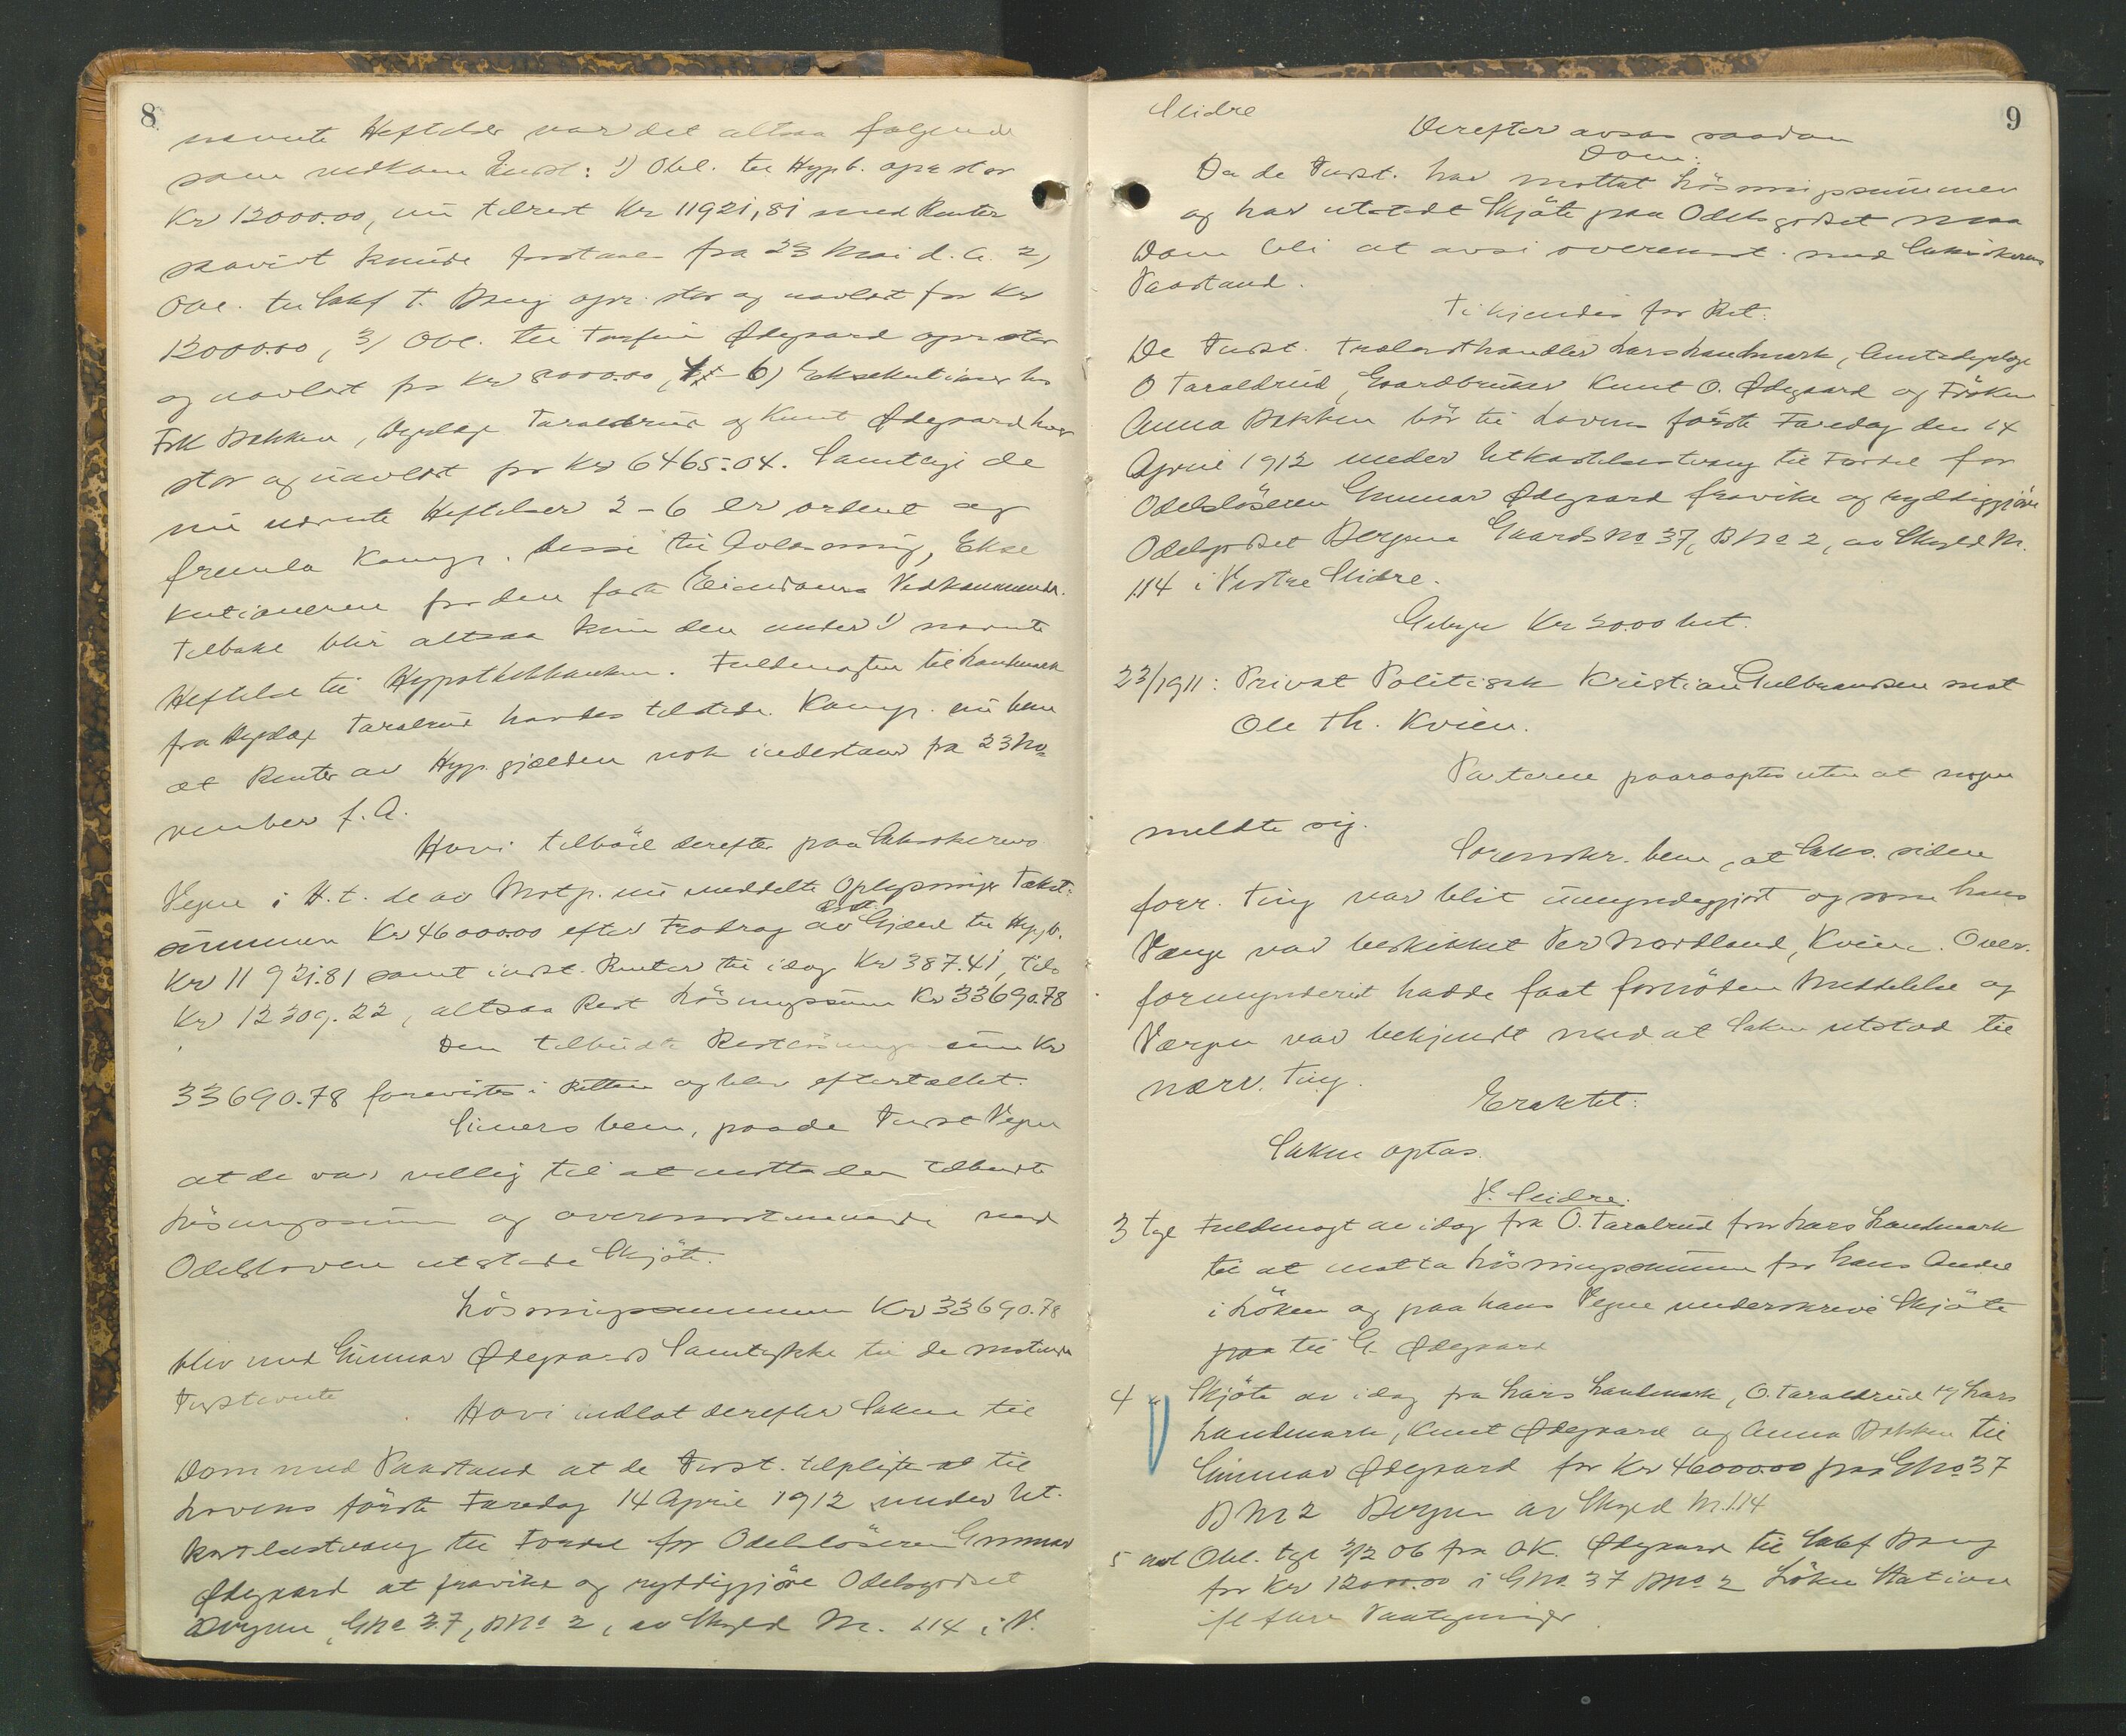 8
nævnte Heftelser var det altsaa følgende
som vedkom Indst: 1) Obl. til Hypb. opr stor
Kr 12000.00, nu tilrest Kr 11921,81 med Renter
saavidt kunde forstaaes fra 23 Mai d. A. 2)
Obl. til Sakf T. Bang opr. stor og uavløst for Kr
12000.00, 3) Obl. til Torfin Ødegaard opr stor
og uavløst for Kr 8000.00, 4-6) Eksekutioner hos
Frk Bakken, Veplag Taraldrud og Knut Ødegaard hver
stor og uavløst for Kr 6465.04. Samtlige de
nu nævnte Heftelser 2-6 er ordent og
fremla Komp. disse til Avlæsning, Ekse
kutionerne for den faste Eiendoms Vedkommende.
Tilbake blir altsaa kun den under 1) nævnte
Heftelse til Hypothekbanken. Fuldmagten til Landmark
fra Taralrud havdes tilstede. Komp. nu bem
at Renter av Hyp. gjælden nok indestaar fra 23 No-
vember f. A.
Hovi tilbød derefter paa Saksøkerens
Vegne i H.t. de av Motp. nu meddelte Oplysninger Takst-
summen Kr 46000.00 efter Fradrag av Gjæld til Hypb.
Kr 11921.81 samt indst. Renter til idag Kr 387.41, tils
Kr 12309.22, altsaa Rest Løsningssum Kr 33690.78
Den tilbudte Restløsningssum Kr
33690.78 forevistes i Retten og blev eftertællet.
bem, paa de Indst Vegne
at de var villig til at motta den tilbudte
Løsningssum og overensstemmende med
Odelsloven utstede Skjøte.
Løsningssummen Kr 33690.78
blev med Gunnar Ødegaards Samtykke til de møtende
Indstevnte
Hovi indlot derefter Saken til
Dom med Paastand at de Indst. tilpligtes at til
Lovens første Faredag 14 April 1912 under Ut-
kastelsestvang til Fordel for Odelsløseren Gunnar
Ødegaard at fravike og ryddiggjøre Odelsgodset
Bergene, GNo 37, BNo 2, av Skyld M. 1.14 i V.
9
Slidre
Derefter avsas saadan
Dom:
Da de Indst. har mottat Løsningssummen
og har utstedt Skjøte paa Odelsgodset maa
Dom bli at avsi overensst. med Saksøkerens
Paastand.
Ti kjendes for Ret:
De Indst. Trælasthandler Lars Landmark,
O Taraldrud, Gaardbruker Knut O. Ødegaard og Frøken
Anna Bakken bør til Lovens første Faredag den 14
April 1912 under Utkastelsestvang til Fordel for
Odelsløseren Gunnar Ødegaard fravike og ryddiggjøre
Odelsgodset Bergene Gaards No 37, BNo 2, av Skyld M.
1.14 i Vestre Slidre.
Gebyr Kr 20.00 bet.
23/1911: Privat Politisak Kristian Gulbrandsen mot
Ole Th. Kvien.
Parterne paaroptes uten at nogen
meldte sig.
Sorenskr. bem, at Saks. siden
forr. Ting var blit umyndiggjort og som hans
Værge var beskikket Per Nordland, Kvien. Over-
formynderiet hadde faat fornøden Meddelelse og
Værgen var bekjendt med at Saken utstod til
nærv. Ting.
Eraktet:
Saken optas.
V. Slidre.
3 tgl Fuldmagt av idag fra O. Taralrud for Lars Landmark
til at motta Løsningssummen for hans Andel
i Løken og paa hans Vegne underskrive Skjøte
paa til G. Ødegaard
4 " Skjøte av idag fra Lars Landmark, O. Taraldrud v/ Lars
Landmark, Knut Ødegaard og Anna Bakken til
Gunnar Ødegaard for Kr 46000.00 paa GNo 37
BNo 2 Bergene av Skyld M. 1.14
5 avl Obl. tgl 3/2 06 fra O.K. Ødegaard til Sakf Bang
for Kr 12000.00 i GNo 37 BNo 2 Løken Station